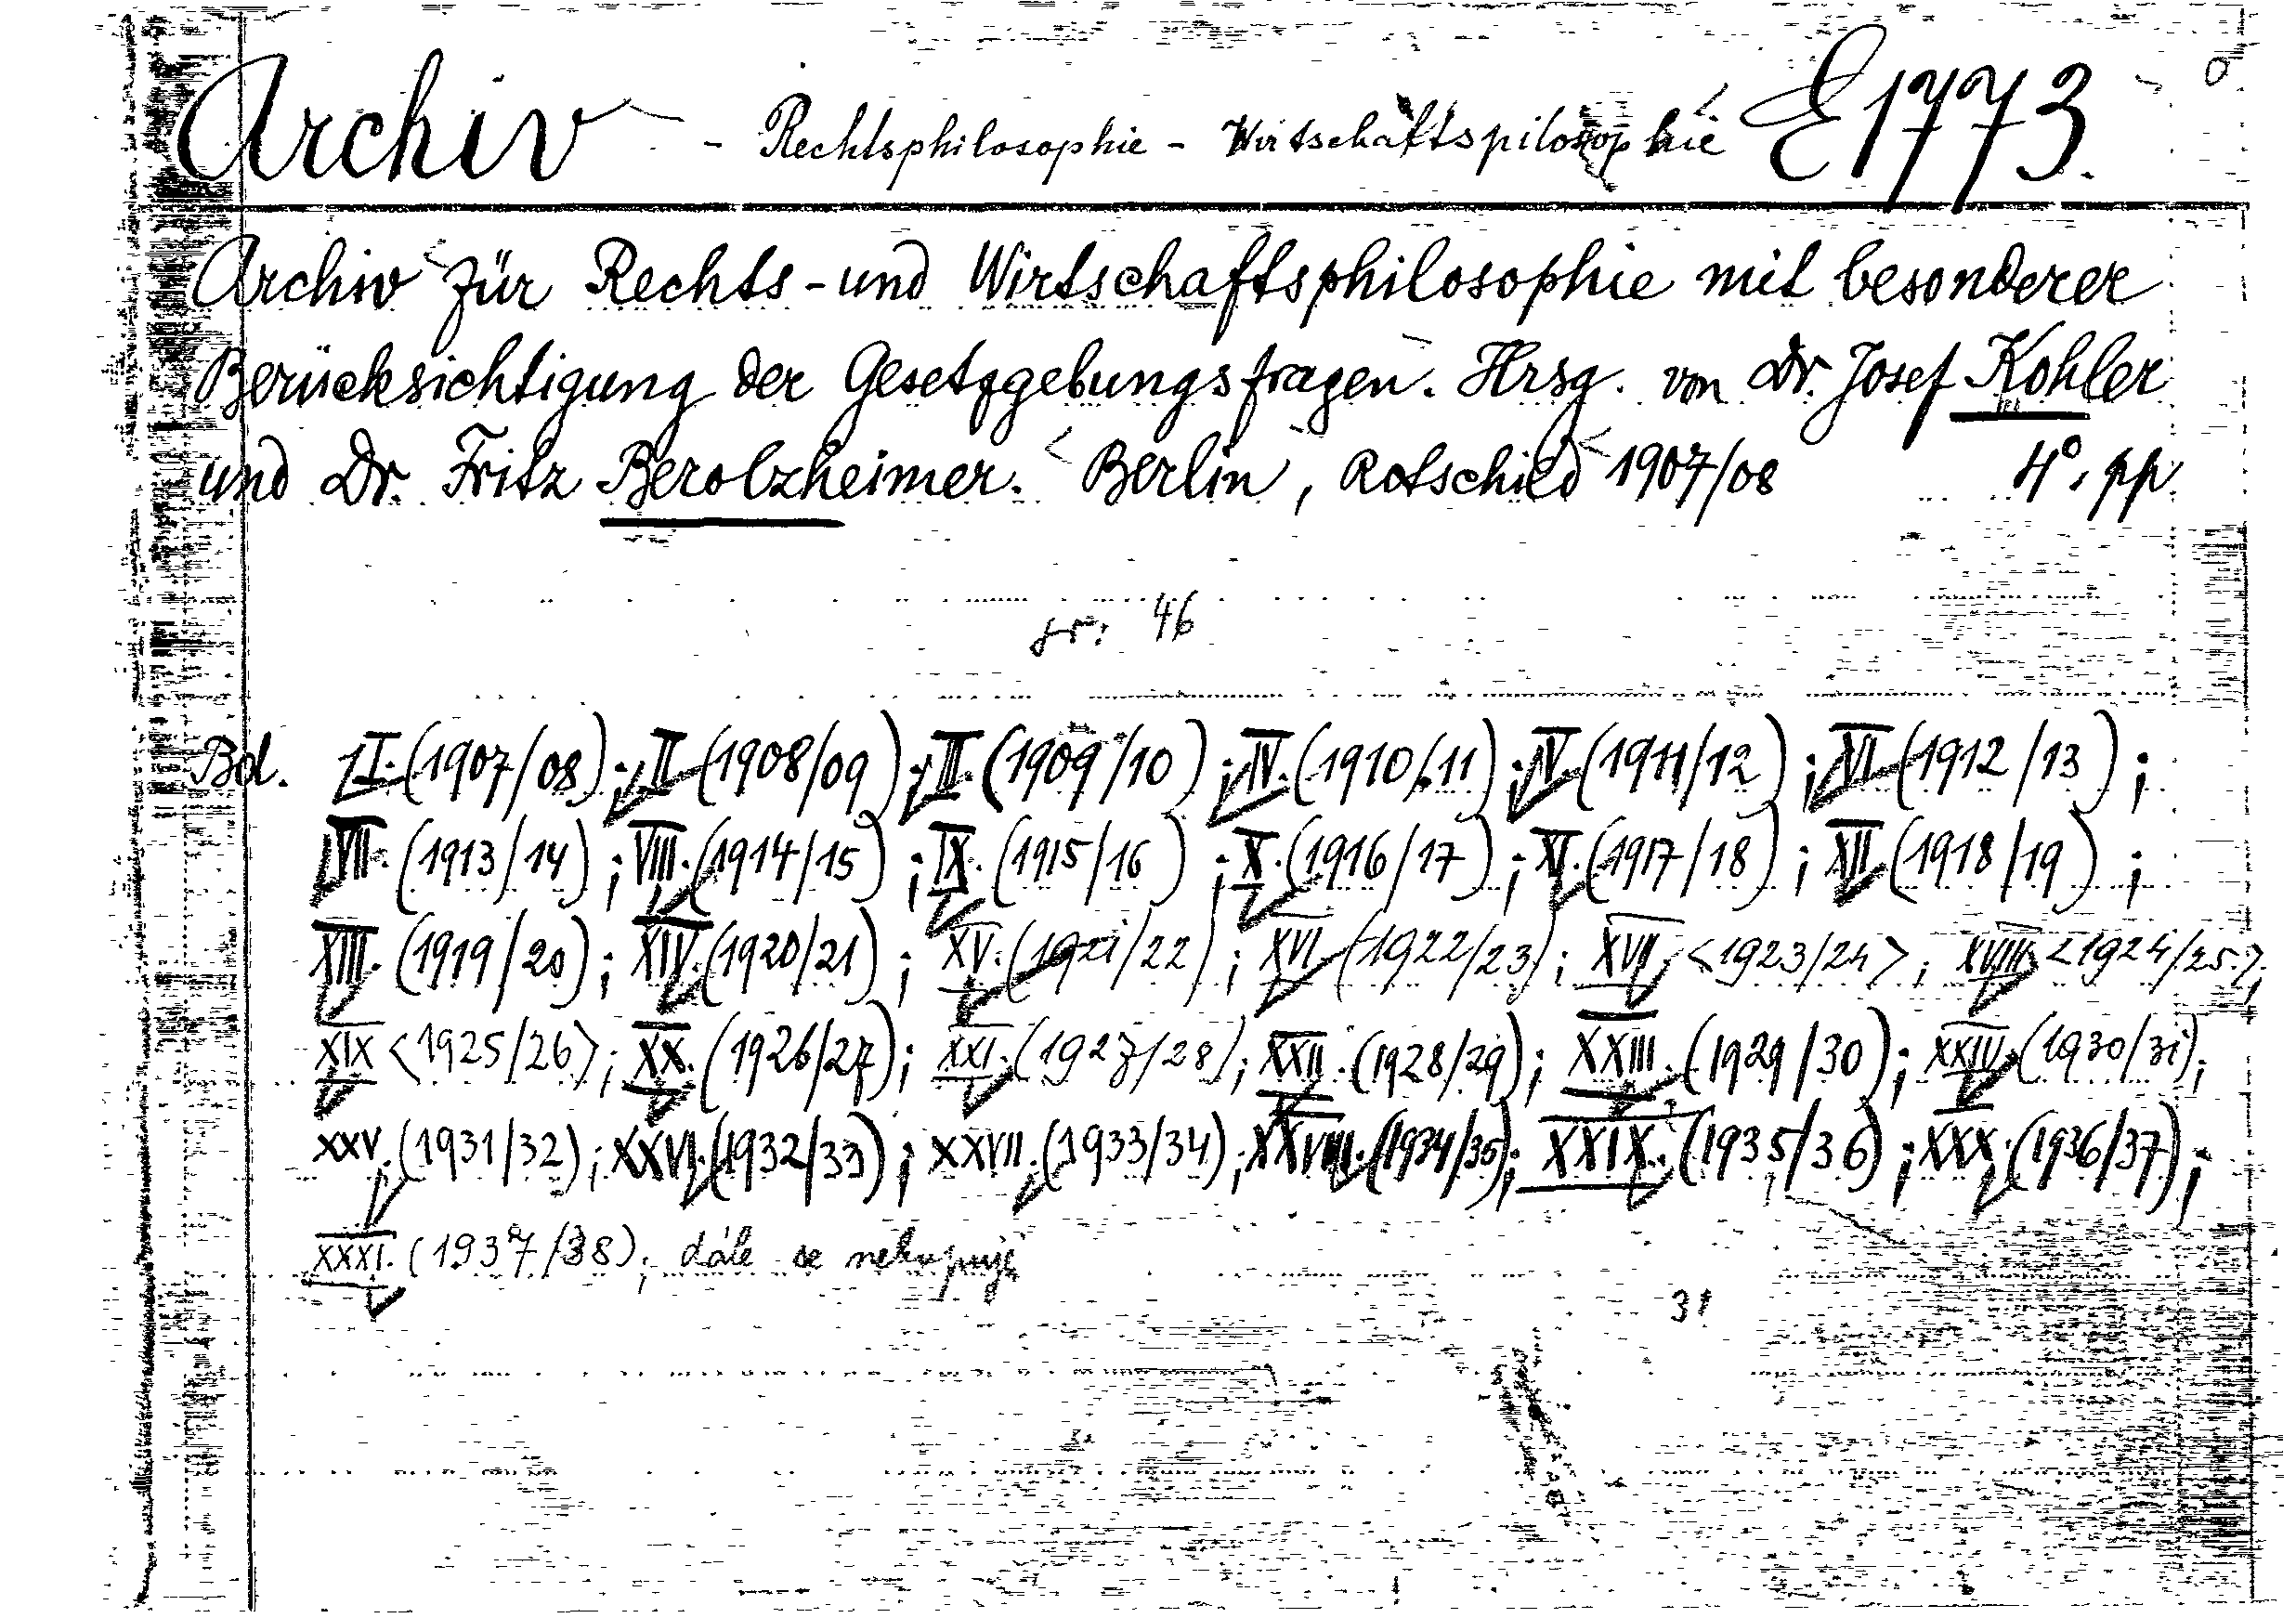 Archiv - Rechtsphilosophie - Wirtschaftspilosophie E1773.
Archiv für Rechts-und Wirtschaftsphilosophie mit besonderer
Berücksichtigung der Gesetzgebungsfragen. Hrsg. von Dr. Josef Kohler
und Dr. Fritz Berolzheimer. Berlin, Rotschild 1907/08 4°, pp
46
Bd. I. (1907/08); II (1908/09); III. (1909/10); IV. (1910/11); V. (1911/12); VI (1912/13);
VII. (1913/14); VIII. (1914/15); IX. (1915/16); X. (1916/17); XI. (1917/18); XII (1918/19);
XIII. (1919/20); XIV. (1920/21); XV. (1921/22); XVI. (1922/23); XVII <1923/24>; XVIII <1924/25>;
XIX <1925/26>; XX. (1926/27); XXI. (1927/28); XXII. (1928/29); XXIII. (1929/30); XXIV. (1930/31);
XXV. (1931/32); XXVI. (1932/33); XXVII. (1933/34); XXVIII. (1934/35); XXIX. (1935/36); XXX. (1936/37);
XXXI. (1937/38); dále se nekupuje
31